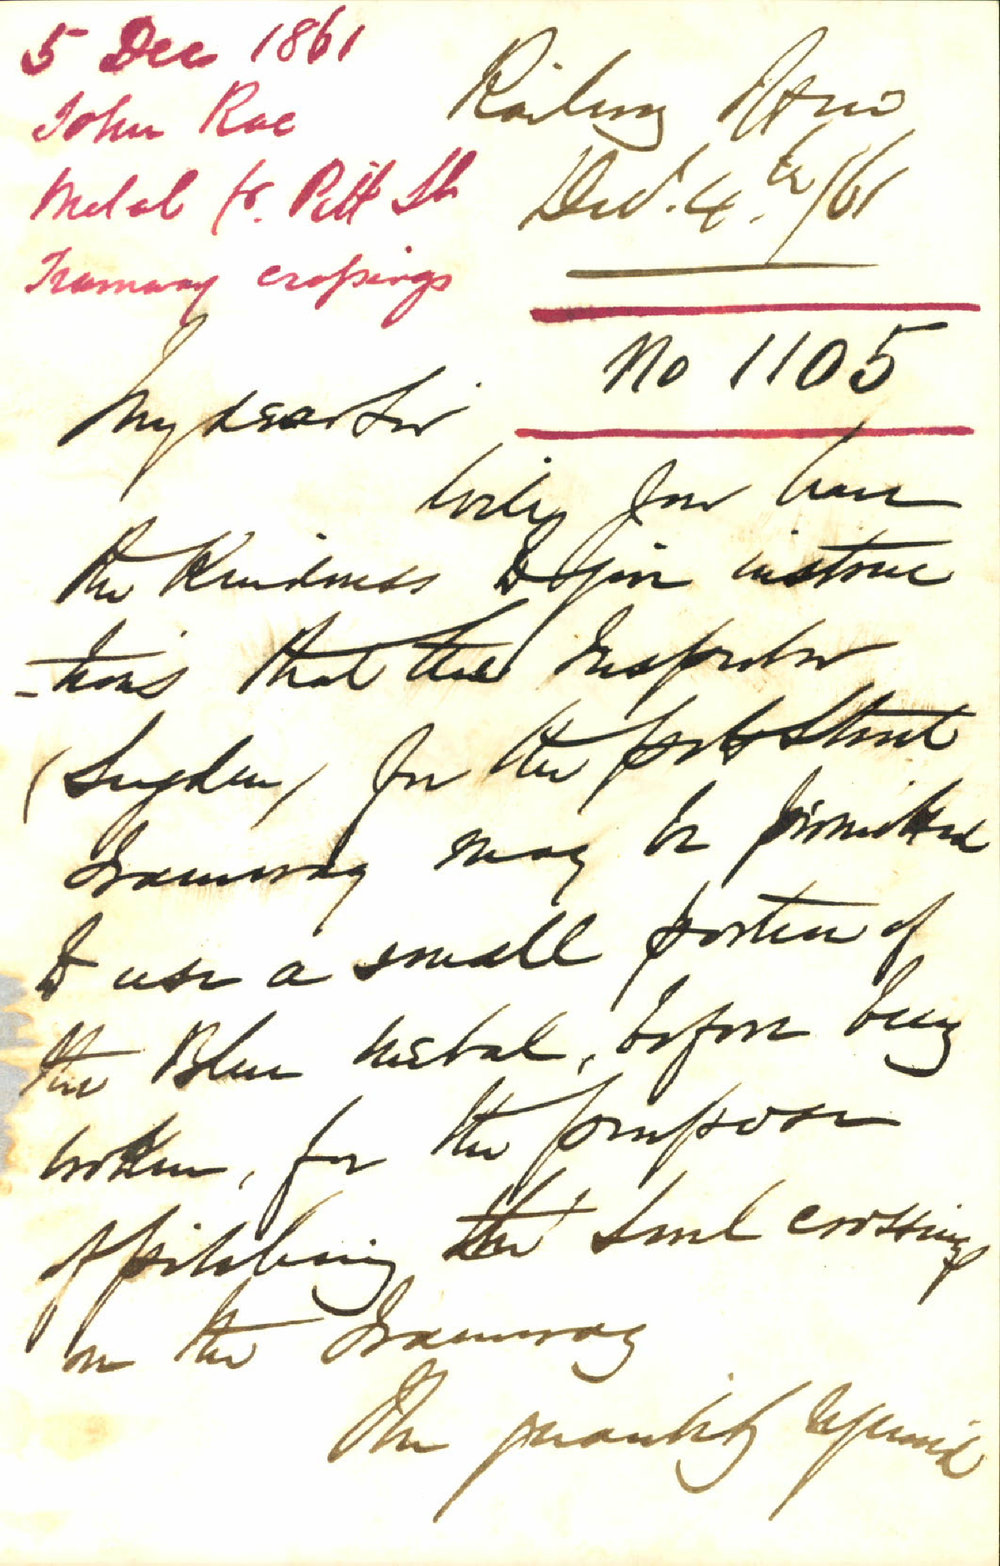 5 Dec 1861
John Rae
Metal for Pitt St
Tramway crossings
Railway Office
Decr. 4.th/61
No 1105
My dear Sir
Will you have
the Kindness to give instruc
-tions that the Inspector
(Sugden) for the Pitt Street
Tramway may be permitted
to use a small portion of
the Blue metal, before being
broken, for the purpose
of pitching the Land crossings
on the Tramway
The quantity required